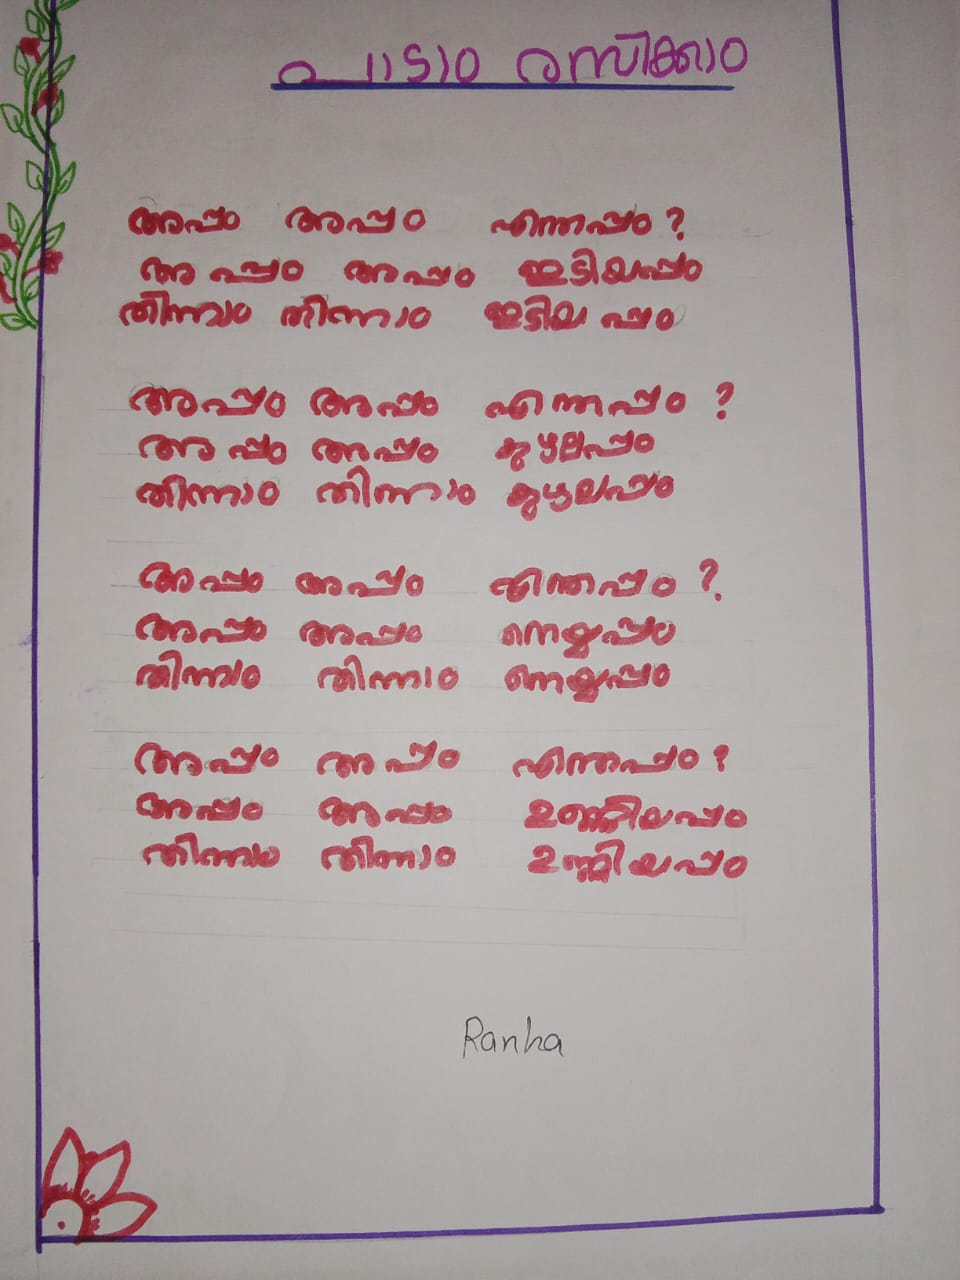 പാടാം രസിക്കാം
അപ്പം അപ്പം എന്തപ്പം?
അപ്പം അപ്പം ഇടിയപ്പം
തിന്നാം തിന്നാം ഇടിയപ്പം
അപ്പം അപ്പം എന്തപ്പം ?
അപ്പം അപ്പം കുഴലപ്പം
തിന്നാം തിന്നാം കുഴലപ്പം
അപ്പം അപ്പം എന്തപ്പം ?
അപ്പം അപ്പം നെയ്യപ്പം
തിന്നാം തിന്നാം നെയ്യപ്പം
അപ്പം അപ്പം എന്തപ്പം ?
അപ്പം അപ്പം ഉണ്ണിയപ്പം
തിന്നാം തിന്നാം ഉണ്ണിയപ്പം
Ranha